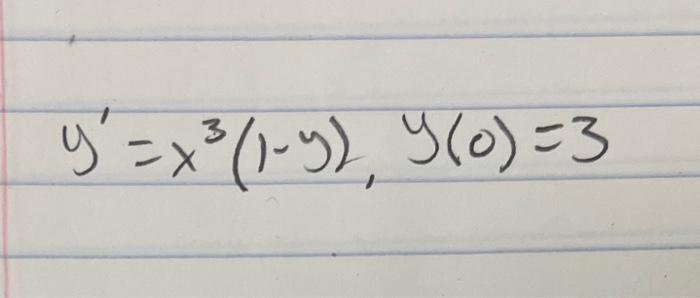 y' = x³(1-y), y(0) = 3